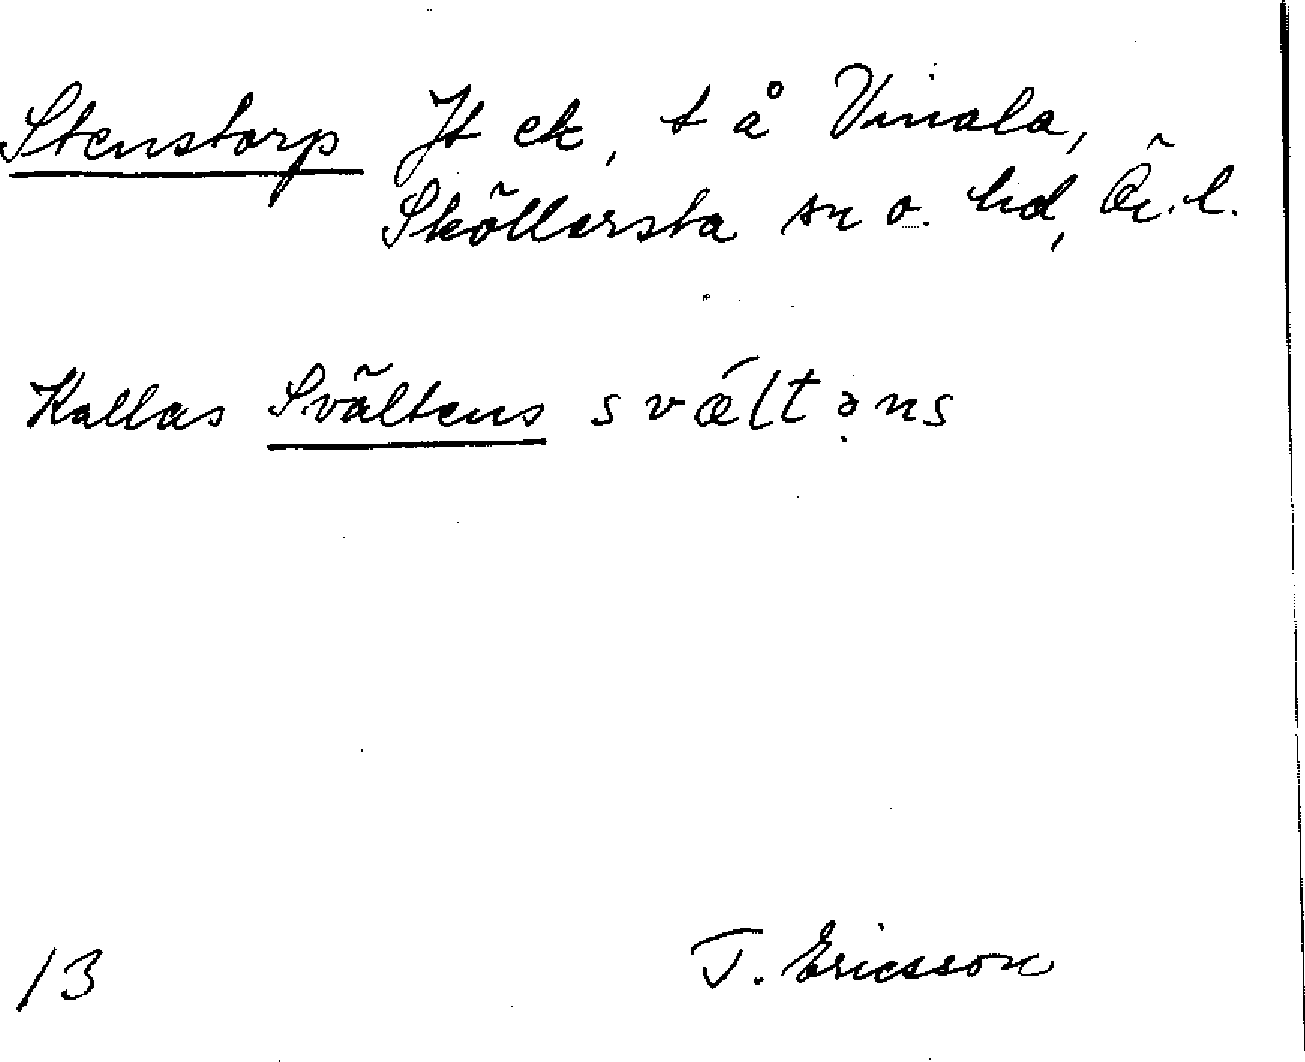 Stenstorp Jt ek, t å Vinala,
Sköllersta sn o. hd, Ör. l.
Kallas Svältens sváltəns
13 T. Ericsson